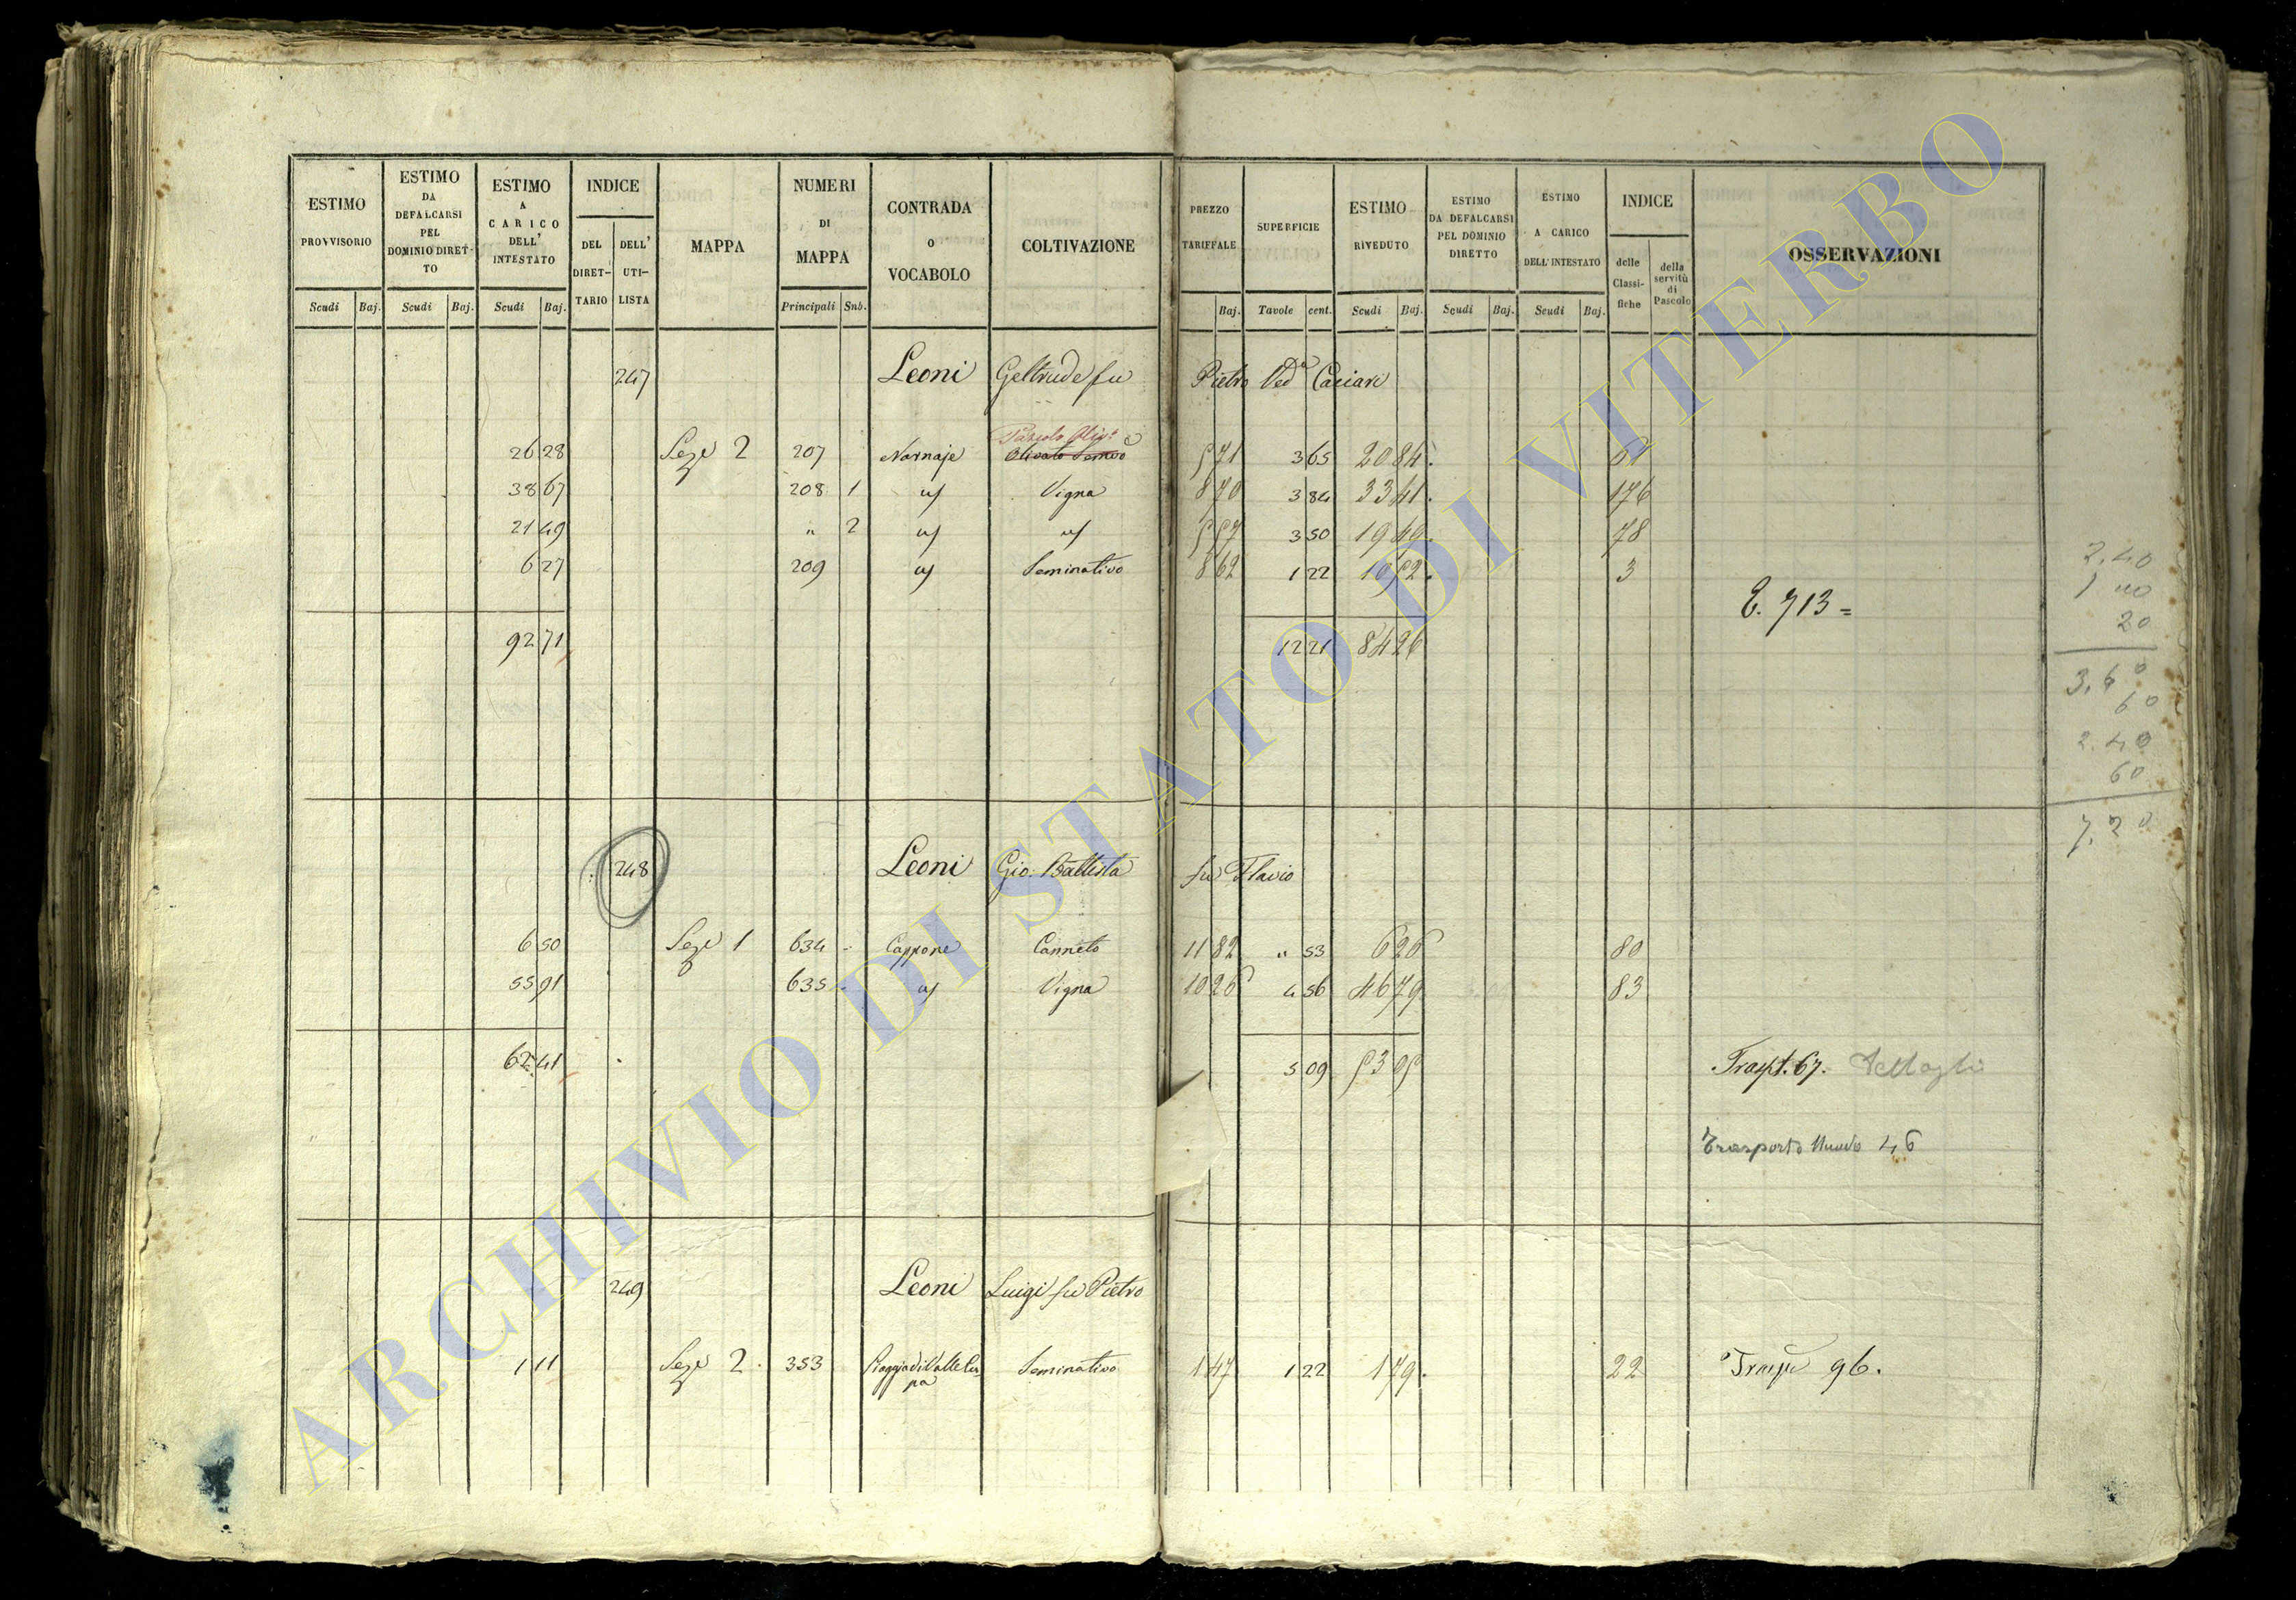 ESTIMO PROVVISORIO Scudi Baj.
ESTIMO DA DEFALCARSI PEL DOMINIO DIRET-TO Scudi Baj.
ESTIMO A CARICO DELL' INTESTATO Scudi Baj.
INDICE DEL DIRET-TARIO DELL' UTI-LISTA
MAPPA
NUMERI DI MAPPA Principali Sub.
CONTRADA O VOCABOLO
COLTIVAZIONE
PREZZO TARIFFALE Baj.
SUPERFICIE Tavole cent.
ESTIMO RIVEDUTO Scudi Baj.
ESTIMO DA DEFALCARSI PEL DOMINIO DIRETTO Scudi Baj.
ESTIMO A CARICO DELL' INTESTATO Scudi Baj.
INDICE delle Classi-fiche della servitù di Pascolo
OSSERVAZIONI
247 Leoni Geltrude fu Pietro Ved.a
Pascolo Oliv.o
26 28 Sez.e 2 207 Nornaje Olivato Semvo 5 71 3 65 20 84
38 67 208 1 " Vigna 8 70 3 84 33 41 176
21 49 " 2 " " 5 57 3 50 19 49 78
6 27 209 " Seminativo 8 62 1 22 10 52 3
T. 713=
92 71 12 21 84 26
2.40
20
3.60
60
2.40
60
7.20
248 Leoni Gio. Battista fu Flavio
6 50 Sez.e 1 634 Cappone Canneto 11 82 " 53 6 26 80
55 91 635 " Vigna 10 26 4 56 46 79 83
62 41 5 09 53 05 Traspt. 67. Dettaglio
Trasporto Nuovo 46
249 Leoni Luigi fu Pietro
1 11 Sez.e 2. 353 Seminativo 1 47 1 22 1 79. 22 96.
ARCHIVIO DI STATO DI VITERBO